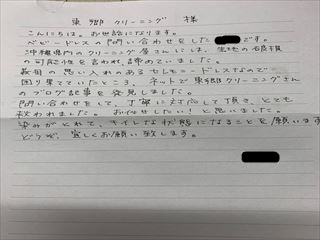 東郷 クリーニング 様
こんにちは。お世話になります。
ベビードレスの問い合わせをした です。
沖縄県内のクリーニング屋さんには、生地の損傷
の可能性を言われ、諦めていました。
義母の思い入れのあるセレモニードレスなので
困り果てていたところ、ネットで東郷クリーニングさん
のブログ記事を発見しました。
問い合わせをして、丁寧に対応して頂き、とても
救われました。お任せしたい!と思いました。
染みがとれて、キレイな状態になることを願います
どうぞ、宜しくお願い致します。